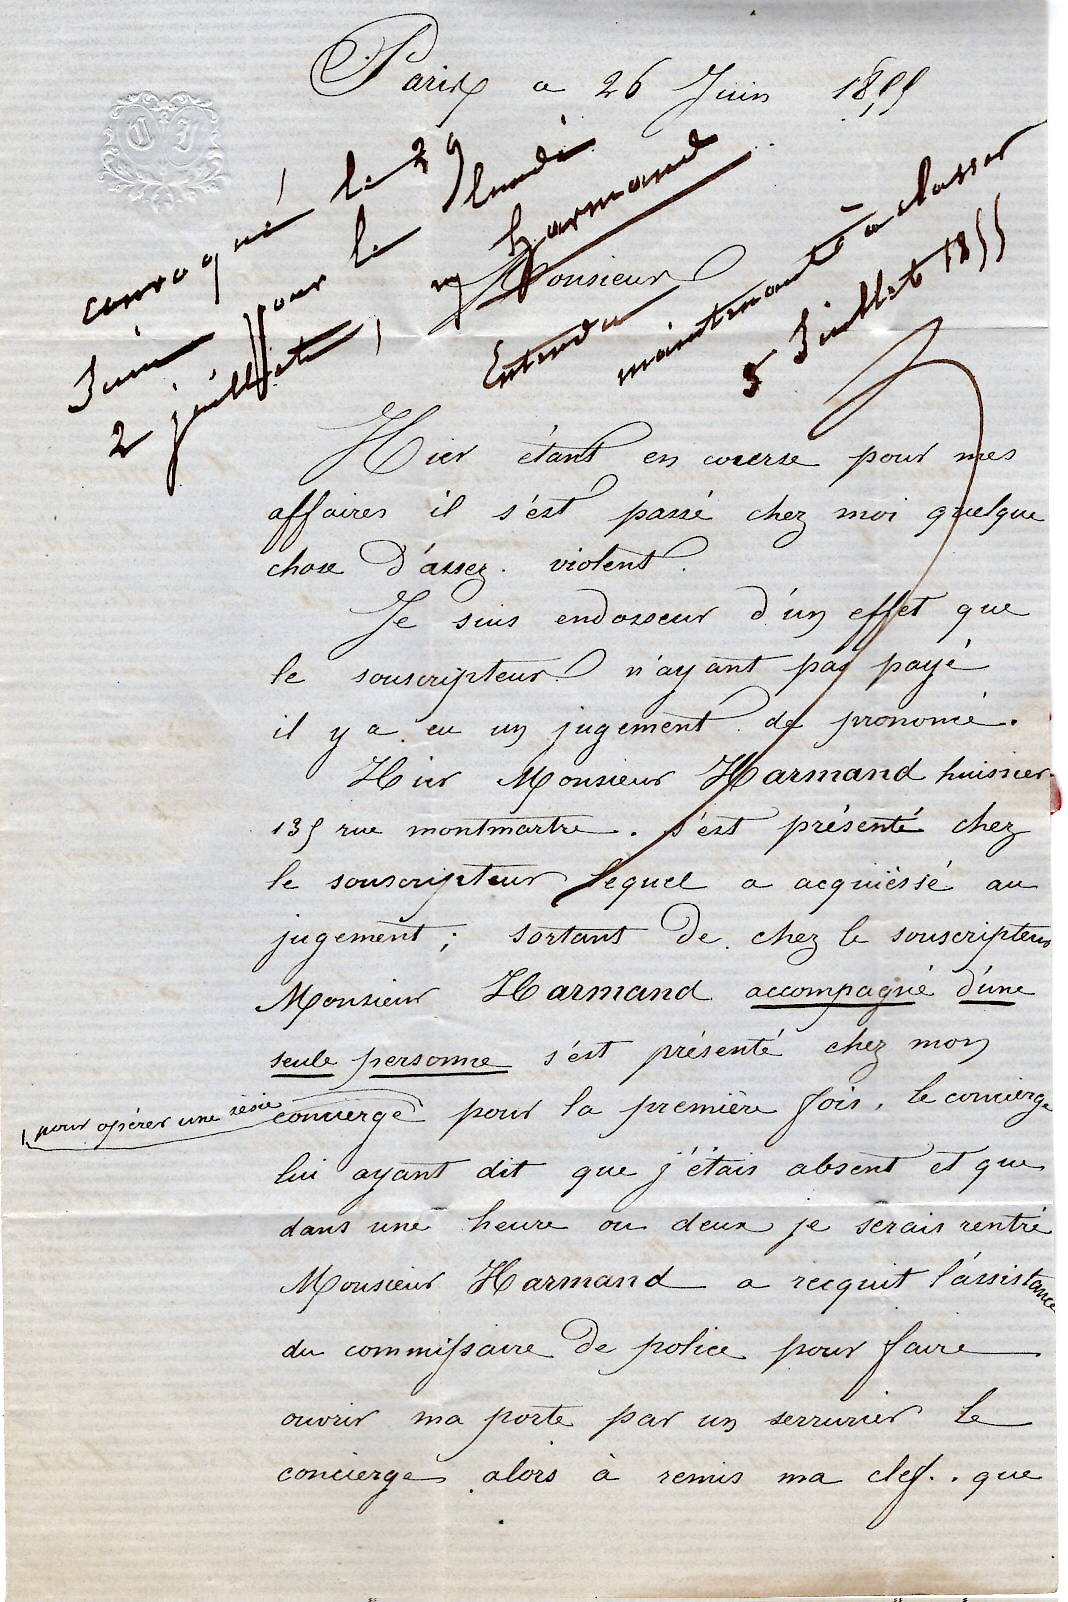 Paris a 26 Juin 1855
C J
convoqué le 29
Juin pour le lundi
2 juillet, m Harmand
Monsieur
Entendu
maintenant à classer
5 Juillet 1855
Hier étant en course pour mes
affaires il s'est passé chez moi quelque
chose d'assez violent.
Je suis endosseur d'un effet que
le souscripteur n'ayant pas payé
il y a eu un jugement de prononcé.
Hier Monsieur Harmand huissier
135 rue montmartre. s'est présenté chez
le souscripteur lequel a acquiéssé au
jugement ; sortant de chez le souscripteur
Monsieur Harmand accompagné d'une
seule personne s'est présenté chez mon
pour opérer une sésie
concierge pour la première fois, le concierge
lui ayant dit que j'étais absent et que
dans une heure ou deux je serais rentré
Monsieur Harmand a recquit l'assistance
du commissaire de police pour faire
ouvrir ma porte par un serrurier le
concierge alors à remis ma clef.. que